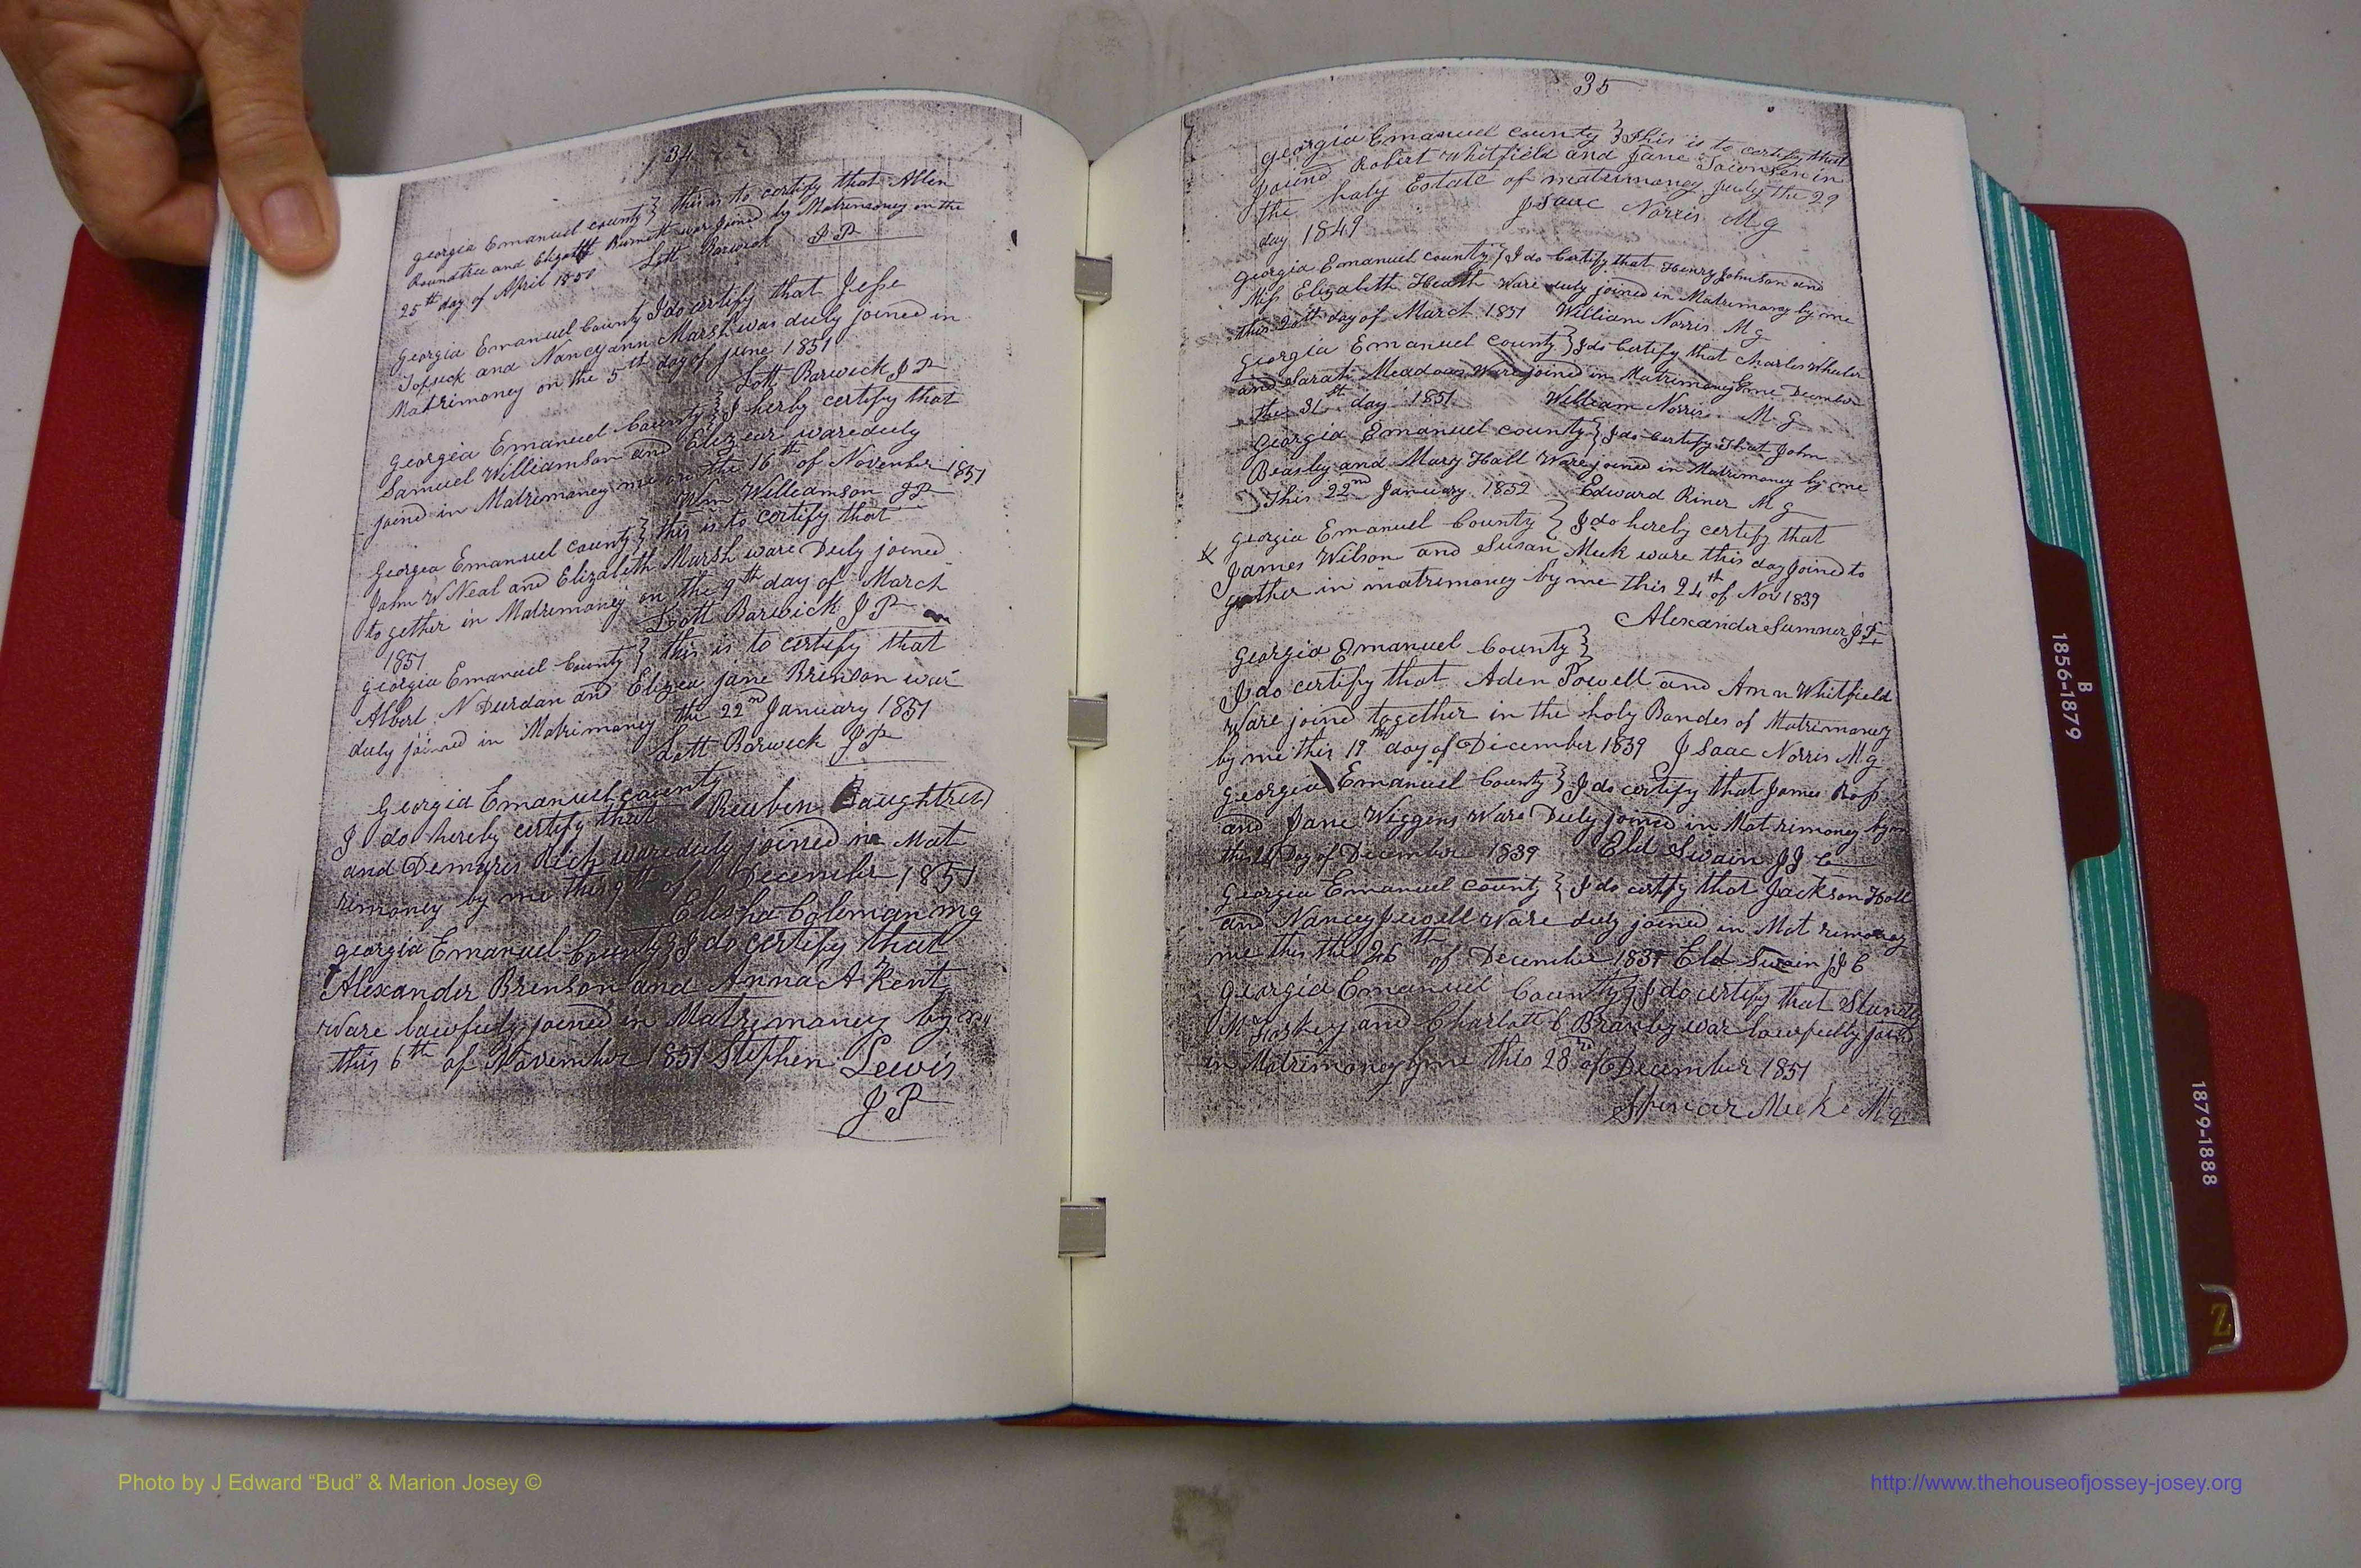 34
Georgia Emanuel county } this is to certify that Allen
Roundtree and Elizabeth was joined by Matrimoney on the
25th day of April 1850 Lott Barwick J P
Georgia Emanuel County I do certify that Jesse
and Nancyann Marsh was duly joined in
Matrimoney on the 5th day of June 1851
Lott Barwick J P
Georgia Emanuel County } I herby certify that
Samuel Williamson and ware duly
joined in Matrimoney me on the 16th of November 1851
Wm Williamson J P
Georgia Emanuel county } this is to certify that
John W Neal and Elizabeth Marsh ware Duly joined
to gether in Matrimoney on the 9th day of March
1851 Lott Barwick J P
Georgia Emanuel County } this is to certify that
Albert N Durdan and Elizea Jane Brinson war
duly joined in Matrimoney the 22nd January 1851
Lott Barwick J P
Georgia Emanuel county
I do hereby certify that Reuben Daughtrey
and Demaris Rich ware duly joined in Mat
rimoney by me this 9th of December 1851
Elisha Coleman mg
georgia Emanuel County } I do certify that
Alexander Brinson and Anna A Kent
Ware lawfuly joined in Matrimoney by me
this 6th of November 1851 Stephen Lewis
J P
35
Georgia Emanuel county } This is to certify that
Joined Robert Whitfield and Jane in
the holy Estate of matrimoney July the 29
day 1849 Isaac Norris M g
Georgia Emanuel County } I do Certify that Henry Johnson and
Miss Elizabeth Heath Ware duly joined in Matrimoney by me
this 20th day of March 1851 William Norris M g
Georgia Emanuel County } I do Certify that Charles Wheeler
and Sarah Meadows Ware joined in Matrimoney by me December
the 31st day 1851 William Norris M g
Georgia Emanuel county } I do Certify that John
Beasley and Mary Hall Ware joined in Matrimoney by me
This 22nd January 1852 Edward Riner M g
X Georgia Emanuel County } I do hereby certify that
James Wilson and Susan Meek ware this day joined to
gether in matrimoney by me this 24th of Nov 1839
Alexander Sumner J P
Georgia Emanuel County }
I do certify that Aden Powell and Ann Whitfield
Ware joined together in the holy Bandes of Matrimoney
by me this 19th day of December 1839 Isaac Norris M g
Georgia Emanuel County } I do certify that James Ross
and Jane Wiggens Ware Duly joined in Matrimoney by me
this Day of December 1839 Eld Swain J J C
Georgia Emanuel county } I do certify that Jackson Hall
and Nancy Jewell Ware duly joined in Mat rimoney
me this the 26th of December 1839 Eld Swain J J C
Georgia Emanuel County } I do certify that
and Charlott C war lawfully joind
in Matrimoney by me this 28 of December 1851
Spencar Meeks M g
B
1856-1879
1879-1888
Z
Photo by J Edward “Bud” & Marion Josey ©
http://www.thehouseofjossey-josey.org